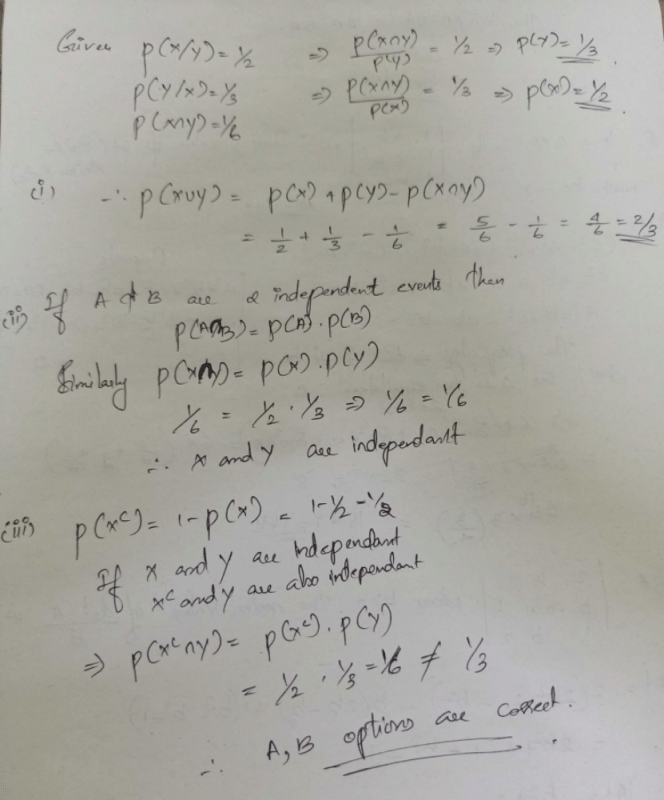 Given P(X/Y) = 1/2 ⇒ P(X∩Y)/P(Y) = 1/2 ⇒ P(Y) = 1/3
P(Y/X) = 1/3 ⇒ P(X∩Y)/P(X) = 1/3 ⇒ P(X) = 1/2
P(X∩Y) = 1/6
(i) ∴ P(X∪Y) = P(X) + P(Y) - P(X∩Y)
= 1/2 + 1/3 - 1/6 = 5/6 - 1/6 = 4/6 = 2/3
(ii) If A & B are 2 independent events then
P(A∩B) = P(A) . P(B)
Similarly P(X∩Y) = P(X) . P(Y)
1/6 = 1/2 . 1/3 ⇒ 1/6 = 1/6
∴ X and Y are independant
(iii) P(X^c) = 1 - P(X) = 1 - 1/2 = 1/2
If X and Y are independant
X^c and Y are also independant
⇒ P(X^c∩Y) = P(X^c) . P(Y)
= 1/2 . 1/3 = 1/6 ≠ 1/3
∴ A, B options are correct.